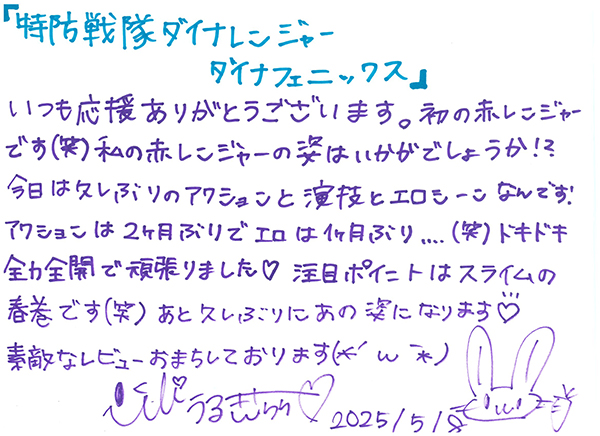 『特防戦隊ダイナレンジャー
ダイナフェニックス』
いつも応援ありがとうございます。初の赤レンジャー
です(笑)私の赤レンジャーの姿はいかがでしょうか!?
今日は久しぶりのアクションと演技とエロシーンなんです!
アクションは2ヶ月ぶりでエロは1ヶ月ぶり....(笑)ドキドキ
全力全開で頑張りました♡ 注目ポイントはスライムの
春巻です(笑)あと久しぶりにあの姿になります♡
素敵なレビューおまちしております(*´ω`*)
うるきらら♡ 2025/5/8